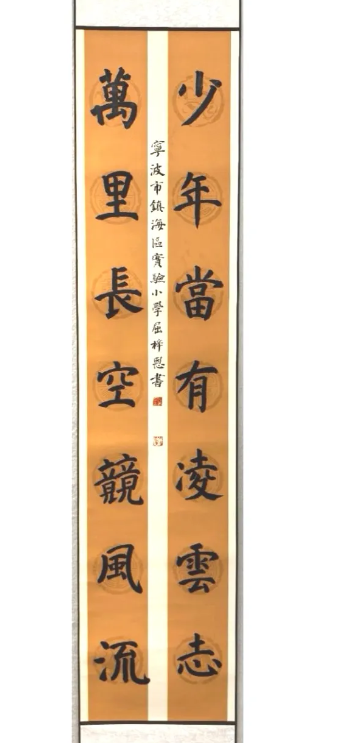 少年當有凌雲志
萬里長空競風流
寧波市鎮海區實驗小學屈梓恩書